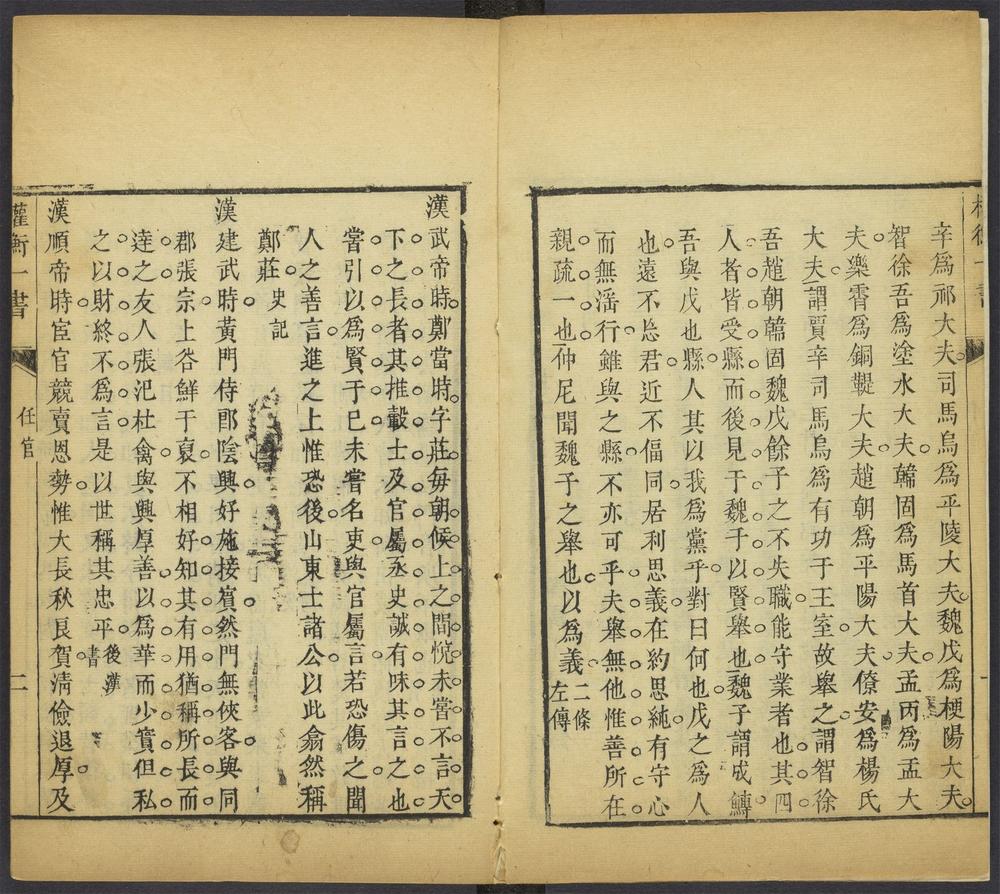 辛為祁大夫司馬烏為平陵大夫魏戊為梗陽大夫
智徐吾為塗水大夫韓固為馬首大夫孟丙為盂大
夫樂霄為銅鞮大夫趙朝為平陽大夫僚安為楊氏
大夫謂賈辛司馬烏為有功于王室故舉之謂智徐
吾趙朝韓固魏戊餘子之不失職能守業者也其四
人者皆受縣而後見于魏子以賢舉也魏子謂成鱄
吾與戊也縣人其以我為黨乎對曰何也戊之為人
也遠不忘君近不偪同居利思義在約思純有守心
而無滛行雖與之縣不亦可乎夫舉無他惟善所在
親疏一也仲尼聞魏子之舉也以為義二條左傳
漢武帝時鄭當時字莊每朝候上之間悅未嘗不言天
下之長者其推轂士及官屬丞史誠有味其言之也
嘗引以為賢于已未嘗名吏與官屬言若恐傷之聞
人之善言進之上惟恐後山東士諸公以此翕然稱
鄭莊史記
漢建武時黃門侍郎陰興好施接賓然門無俠客與同
郡張宗上谷鮮于裒不相好知其有用猶稱所長而
達之友人張汜杜禽與興厚善以為華而少實但私
之以財終不為言是以世稱其忠平後漢書
漢順帝時宦官競賣恩勢惟大長秋良賀清儉退厚及
權衡一書
任官
二